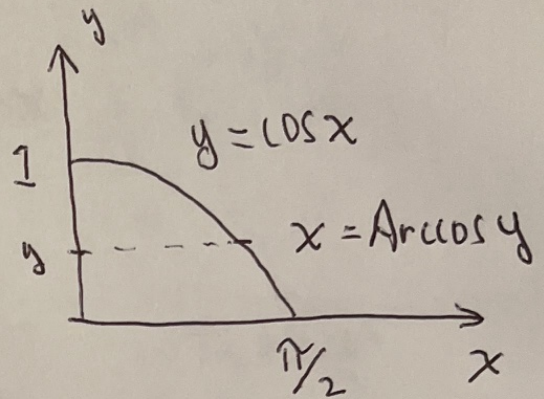 y
y = cos x
1
y
x = Arccos y
π/2
x